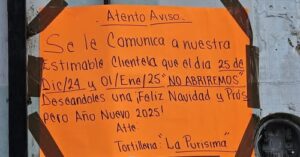 Atento Aviso.
Se le Comunica a nuestra
Estimable Clientela que el dia 25 de
Dic/24 y 01/Ene/25 "NO ABRIREMOS"
Deseandoles una ¡Feliz Navidad y Prós
pero Año Nuevo 2025!
Atte
Tortilleria "La Purisima"